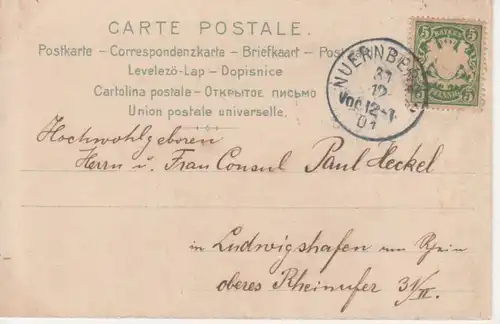 CARTE POSTALE.
Postkarte - Correspondenzkarte - Briefkaart - Postcard
Levelező-Lap - Dopisnice
Cartolina postale - Открытое письмо
Union postale universelle.
5 BAYERN 5
NUERNBERG
31
12
Vor 12-1
01
Hochwohlgeboren
Herrn u. Frau Consul Paul Heckel
in Ludwigshafen am Rhein
oberes Rheinufer 31/II.